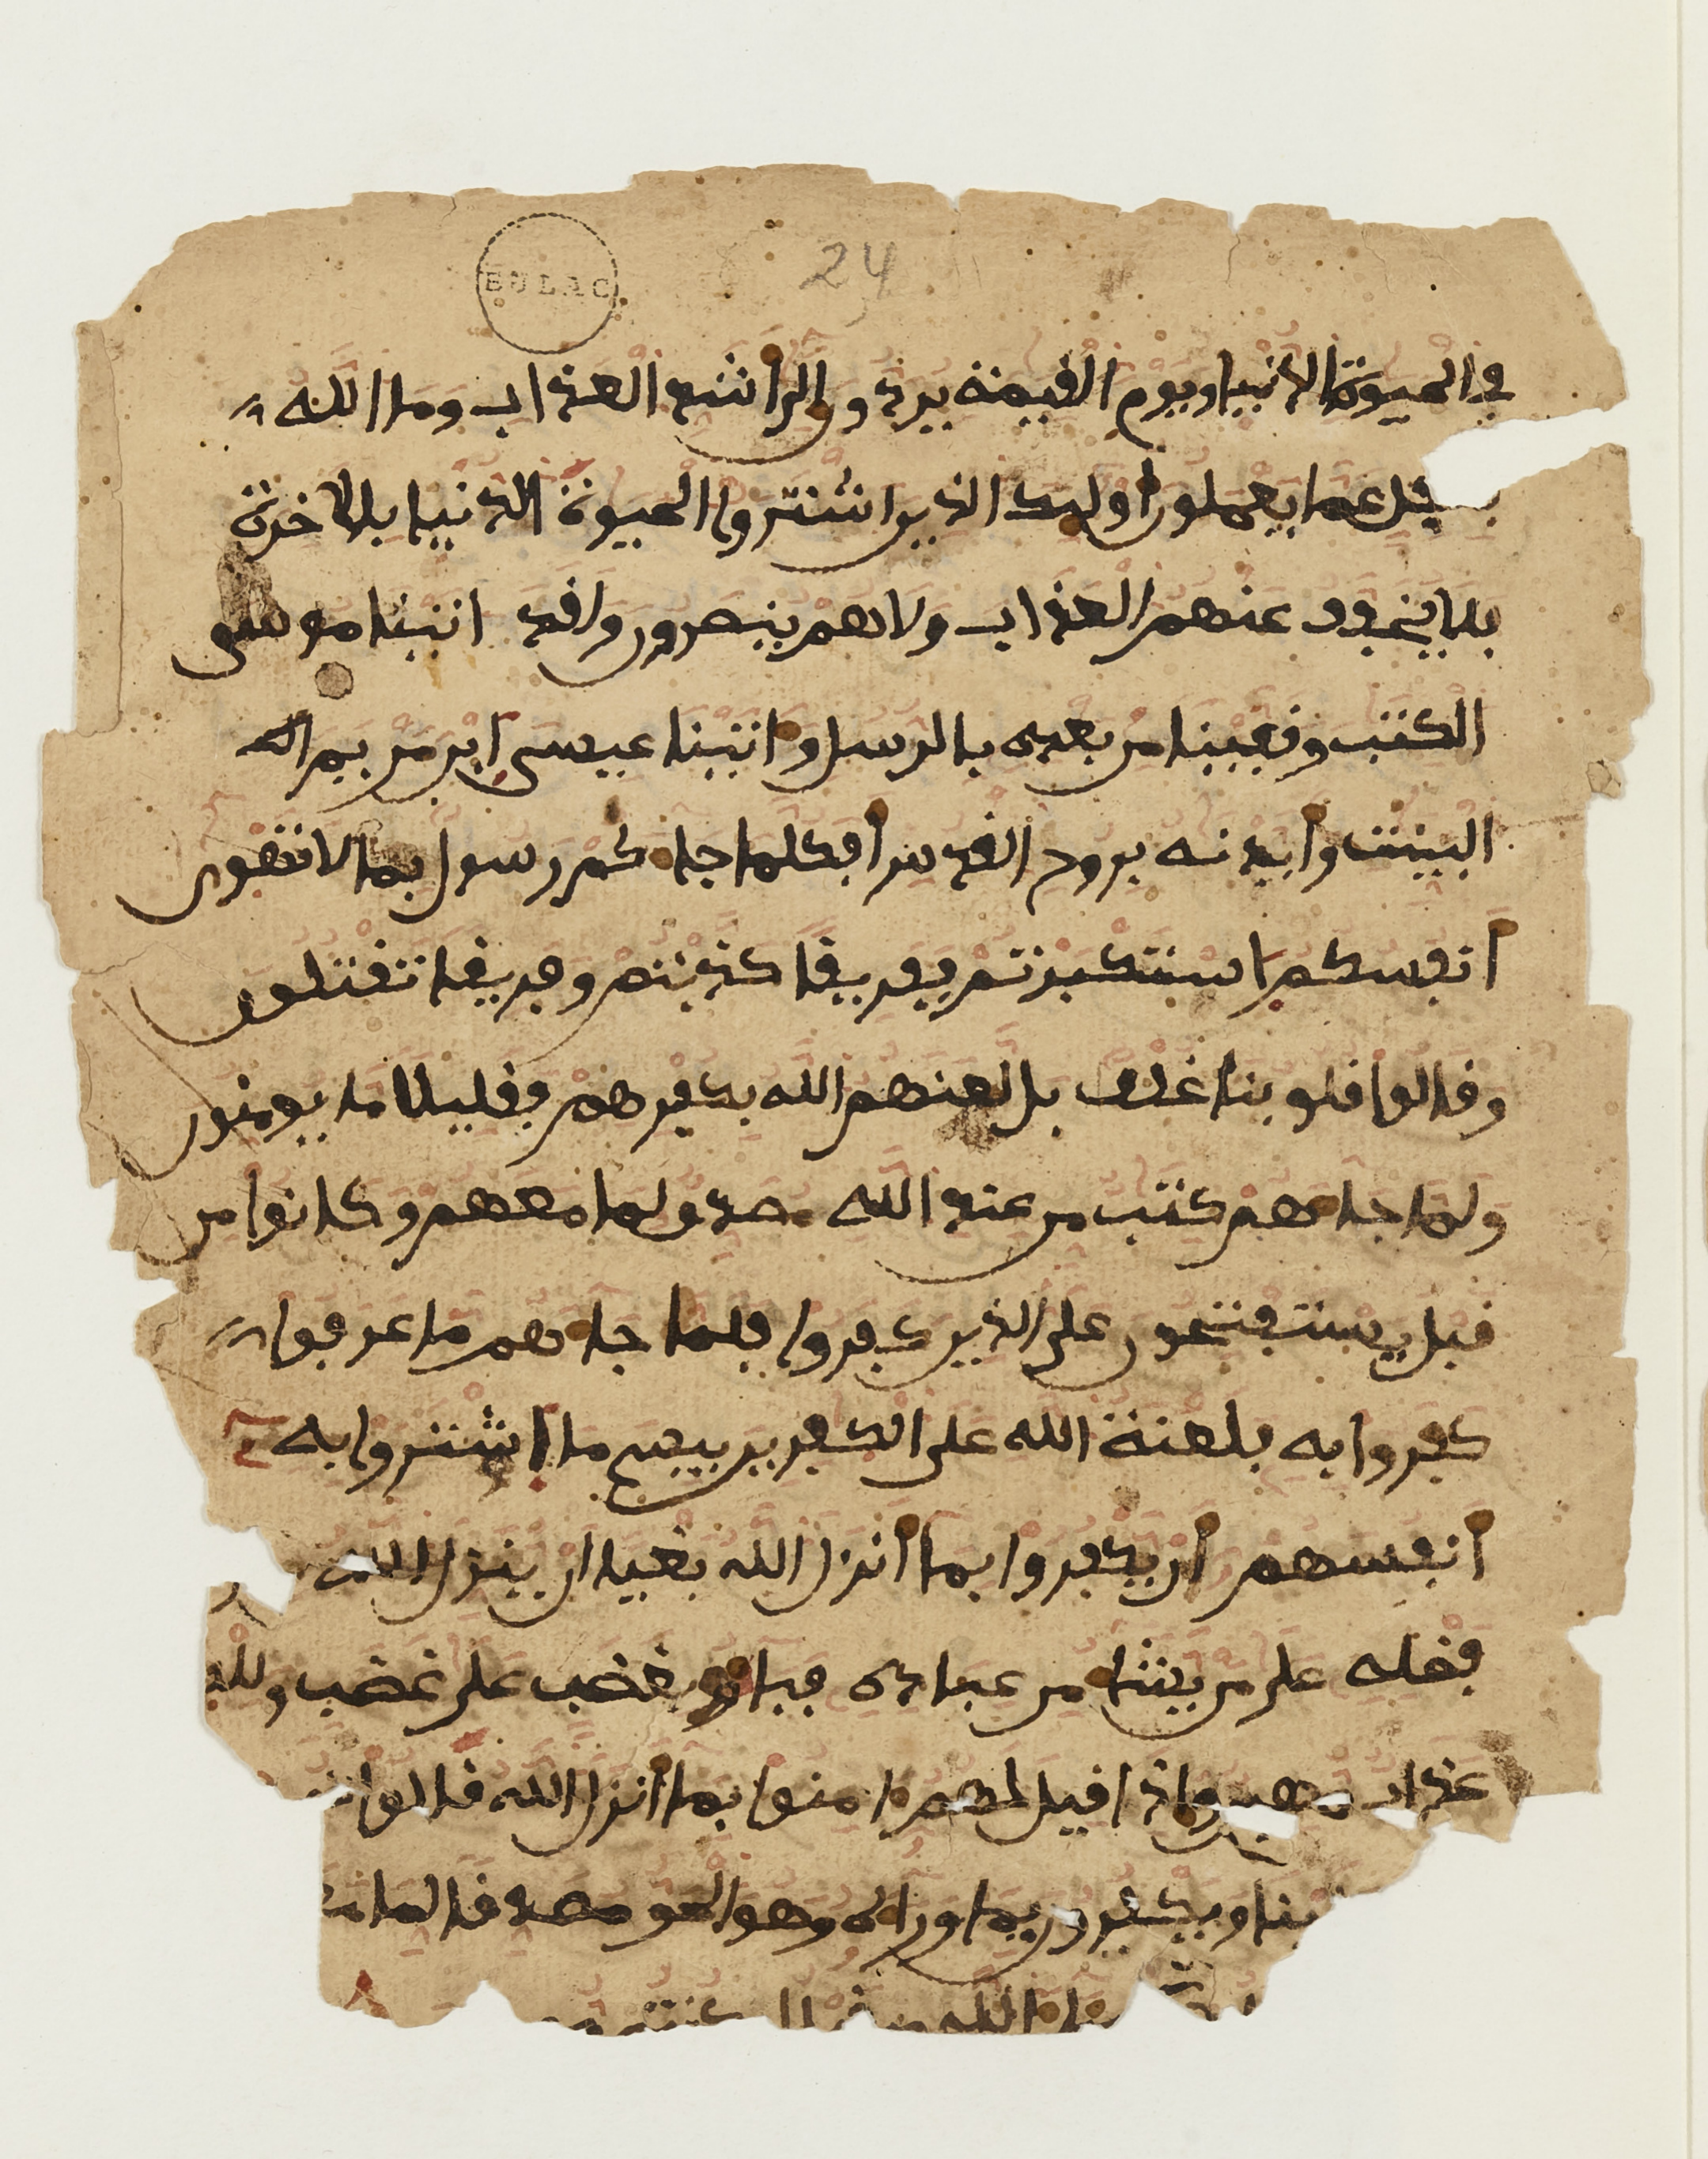 BULAC
24
في الحيوة الدنيا ويوم القيمة يردون إلى أشد العذاب وما الله
بغفل عما يعملون أوليك الذين اشتروا الحيوة الدنيا بالاخرة
فلا يخفف عنهم العذاب ولا هم ينصرون ولقد اتينا موسى
الكتب وقفينا من بعده بالرسل واتينا عيسى ابن مريم
البينت وأيدنه بروح القدس أفكلما جاكم رسول بما لا تهوى
أنفسكم استكبرتم ففريقا كذبتم وفريقا تقتلون
وقالوا قلوبنا غلف بل لعنهم الله بكفرهم فقليلا ما يومنون
ولما جاهم كتب من عند الله مصدق لما معهم وكانوا من
قبل يستفتحون على الذين كفروا فلما جاهم ما عرفوا
كفروا به فلعنة الله على الكفرين بيس ما اشتروا به
أنفسهم أن يكفروا بما أنزل الله بغيا ان ينزل الله
فضله على من يشا من عباده فباو بغضب على غضب وللك
عذاب مهين وإذا قيل لهم امنوا بما أنزل الله قالوا
علينا ويكفرون بما وراه وهو الحق مصدقا لما
الله من قبل ان كنتم